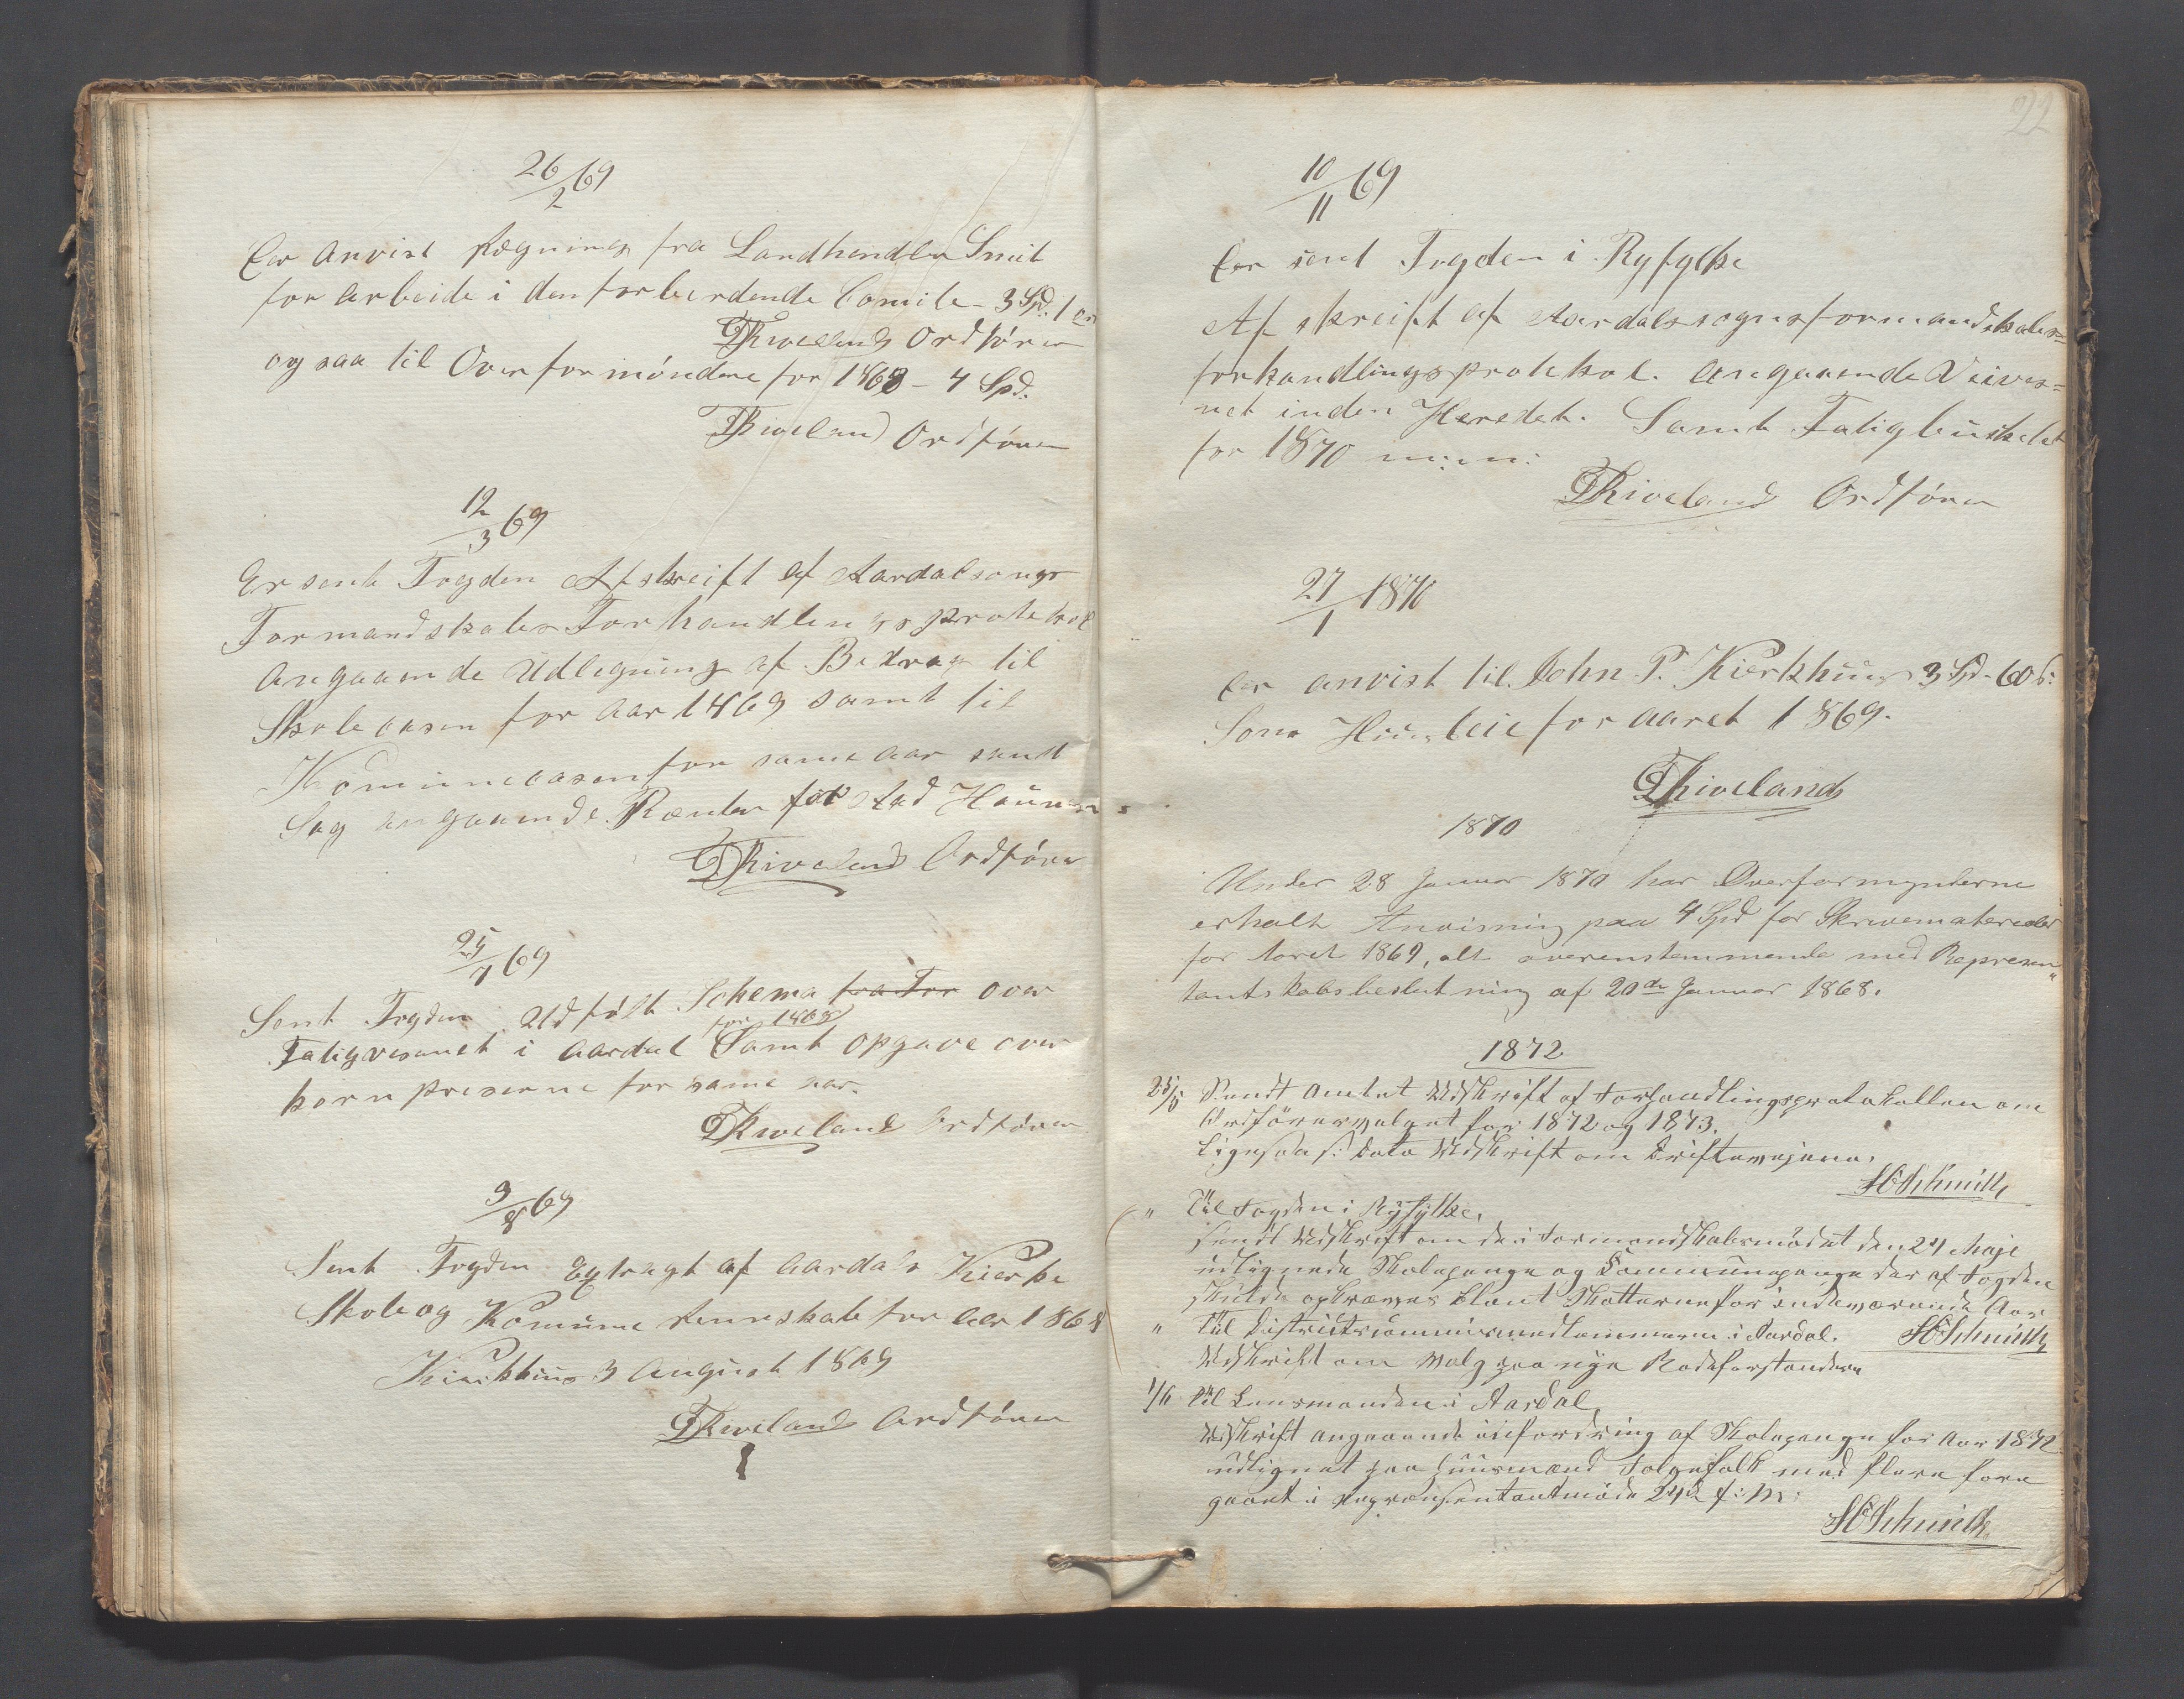 26/2 69
Er Anvist Regning fra Landhandler Smit
for Arbeide i den forberedende Comite - 3 Spd. 1 ort
TRiveland Ordfører
og saa til Overformøndere for 1868 - 4 Spd.
TRiveland Ordfører
12/3 69
Er sent Fogden Afskreift af Aardalsongs
Formandskabes Forhandlings protekol
Angaaende Udlegning af Bedrag til
Skolecasen for aar 1869 samt til
Komunecasen for same aar samt
Sag angaaende Renter for Aad Haunen
TRiveland Ordfører
25/7 69
Sent Fogden Udfølt Schema fra For over
for 1868
Fatigvesenet i Aardal Samt opgave over
kornpreserne for same aar.
TRiveland Ordfører
3/8 69
Sent Fogden Extragt af Aardals Kierke
Skole og Komune Renskab for Aar 1868
Kierkhus 3 August 1869
TRiveland Ordfører
22
10/11 69
Er sent Fogden i Ryfylke
Afskreift af Aardalssognsformandskabes=
forhandlingsprotekol. Angaaende Veives=
net inden Heredet. Samt Fatigbuskelet
for 1870 m:m:
TRiveland Ordfører
27/1 1870
Er anvist til John P. Kierkhus 3 Spd. 60 s:
Som Husleie for aaret 1869.
TRiveland
1870
Under 28 Januar 1870 har Overformynderne
erholt Anvisning paa 4 Spd for Skrivematerialer
for Aaret 1869, alt overenstemmende med Represen"
tantskabsbeslutning af 20de Januar 1868.
1872
28/5 Sendt Amtet Udskrift af Forhandlingsprotokollen om
Ordførervalget for 1872 og 1873.
Ligesaa s: Dato Udskrift om Driftevejene.
HOSchmidt
" Til Fogden i Ryfylke,
sendt Udskrift om de i Formandskabsmødet den 24 Maje
udlignede Skolepenge og Kommunepenge der af Fogden
skulde opkræves blant Skatterne for indeværende Aar
HOSchmidt
" Til Districtscommisionslemmerne i Aardal.
Udskrift om Valg paa nye Rodeforstandere
1/6 Til Lensmanden i Aardal
Udskrift angaaende infordring af Skolepenge for Aar 1872
udlignet paa Huusmænd Folgefolk med flere fore
gaaet i Repræsentantmøde 24de f: M:
HOSchmidt